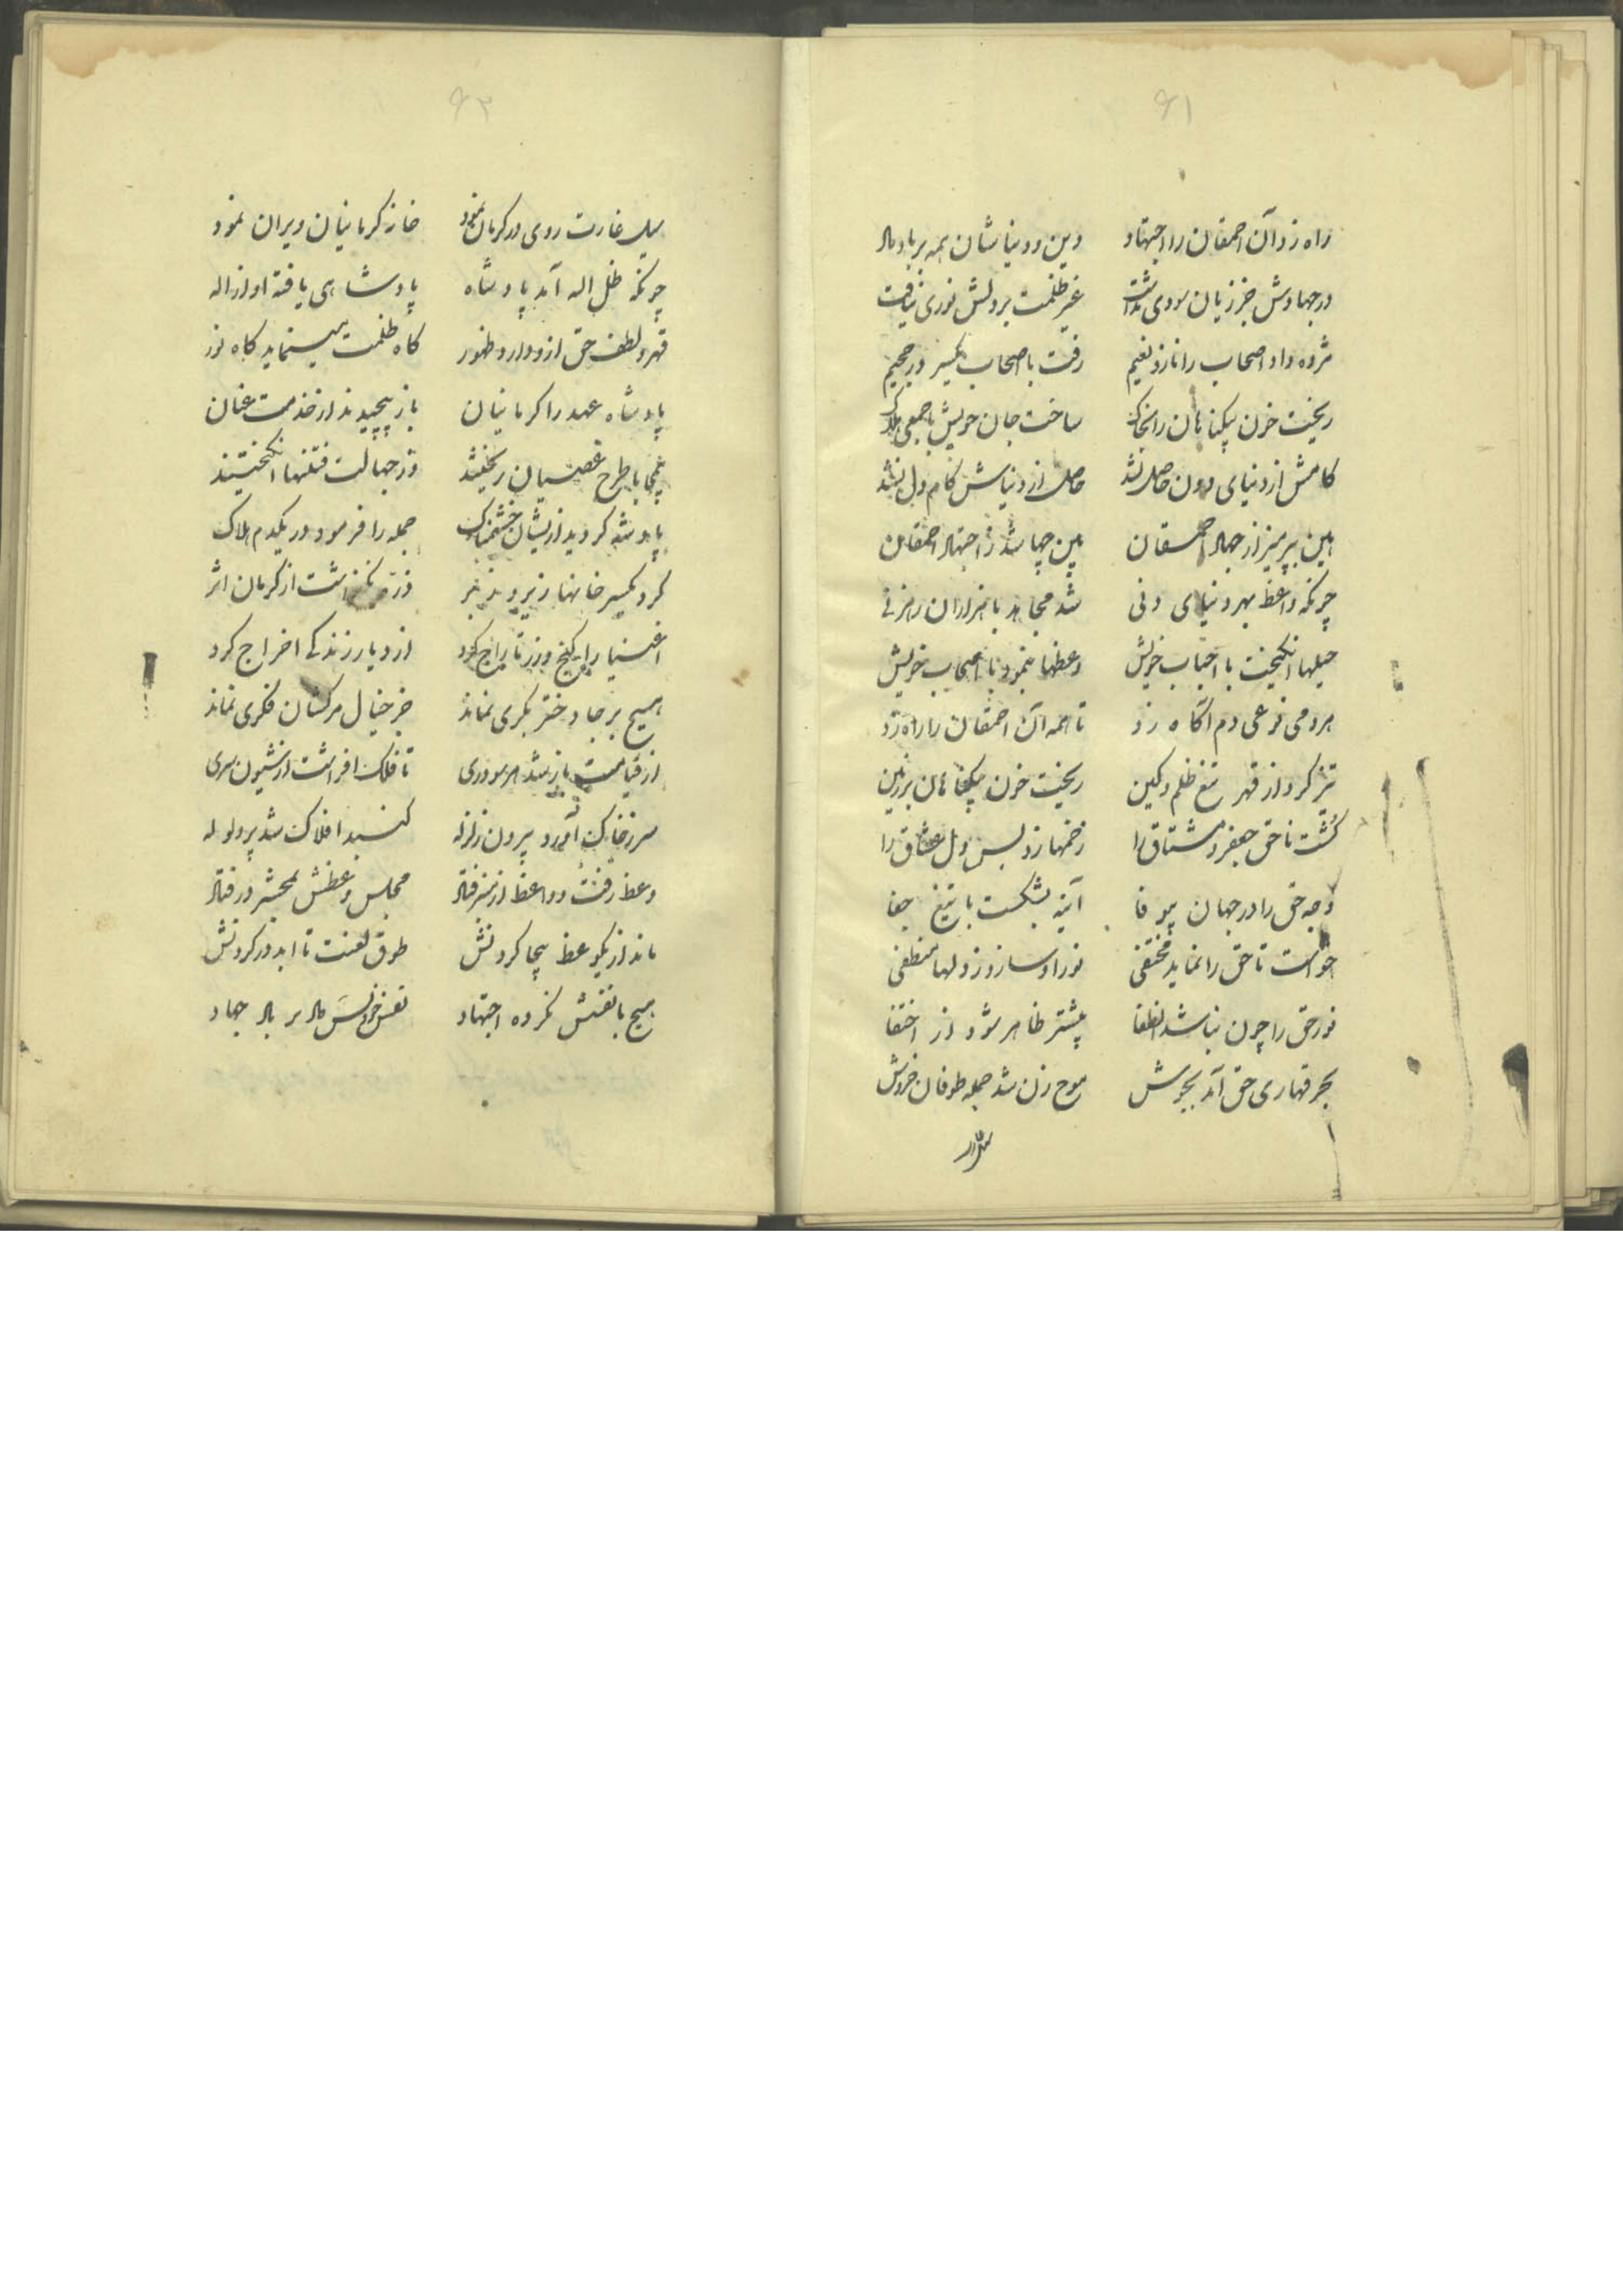 ۶۱
راه زد آن احمقان را اجتهاد دین و دنیاشان همه بر باد داد
در جهادش جز زیان سودی نداشت غیر ظلمت بر دلش نوری نیافت
مژده داد اصحاب را نار و نعیم رفت با اصحاب یکسر در جحیم
ریخت خون بیکناهان را بخاک ساخت جان خویش با جمعی هلاک
کامش از دنیای دون حاصل نشد حاصل از دنیاش کام دل نشد
هین بپرهیز از جهاد احمقان بین چها شد ز اجتهاد احمقان
چونکه واعظ بهر دنیای دنی شد مجاهد با هزاران رهزنی
حیلها انکیخت با احباب خویش وعظها بنمود با اصحاب خویش
هر دمی نوعی دم آکاه زد تا همه آن احمقان را راه زد
تیز کرد از قهر تیغ ظلم و کین ریخت خون بیکناهان بر زمین
کُشت ناحق جعفر و مشتاق را زخمها زد بس دل عشاق را
وجه حق را در جهان بیوفا آینه بشکست با تیغ جفا
خواست تا حق را نماید مختفی نور او سازد ز دلها منطفی
نور حق را چون نباشد انطفا بیشتر ظاهر شود از اختفا
بحر قهاری حق آمد بجوش موج زن شد جمله طوفان خروش
۶۲
سیل غارت روی در کرمان نمود خانه کرمانیان ویران نمود
چونکه ظل اله آمد پادشاه پادشاهی یافته او از اله
قهر و لطف حق ازو دارد ظهور کاه ظلمت مینماید کاه نور
پادشاه عهد را کرمانیان باز پیچیدند از خدمت عنان
بیمحابا طرح عصیان ریختند وز جهالت فتنها انکیختند
پادشه کردید ازیشان خشمناک جمله را فرمود در یکدم هلاک
کرد یکسر خانها زیر و زبر ذره نکذاشت از کرمان اثر
اغنیا را کنج و زر تاراج کرد از دیار زندکی اخراج کرد
هیچ بر جا دختر بکری نماند جز خیال مرکشان فکری نماند
از قیامت باز شد هر سو دری تا فلک افراشت از شیون سری
سر ز خاک آورد بیرون زلزله کنبد افلاک شد پر ولوله
وعظ رفت و واعظ از منبر فتاد مجلس وعظش بمحشر در فتاد
ماند از یکوعظ بیجا کردنش طوق لعنت تا ابد در کردنش
هیچ با نفسش نکرده اجتهاد